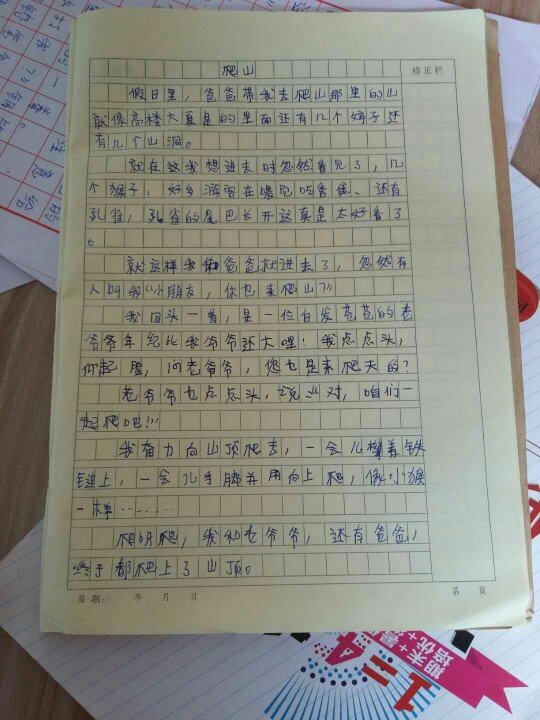 爬山
修正栏
假日里，爸爸带我去爬山那里的山
就像高楼大夏是的里面还有几个
有几个山洞。
就在这我想进去时忽然看见了，几
个猴子，好多游客在喂它吃香蕉、还有
孔雀，孔雀的尾巴长开这真是太好看了
。
就这样我和爸爸就进去了，忽然有
人叫我《小朋友，你也来爬山？》
我回头一看，是一位白发苍苍的老
爷爷年纪比我爷爷还大哩！我点点头，
仰起，问老爷爷，您也是来爬天的？
老爷爷也点点头，说《对，咱们一
起爬吧！》
我奋力向山顶爬去，一会儿攀着铁
链上，一会儿手脚并用向上爬，像小猴
一样……
爬呀爬，我和老爷爷，还有爸爸，
终于都爬上了山顶。
日期： 年 月 日
第 页
期末
培优